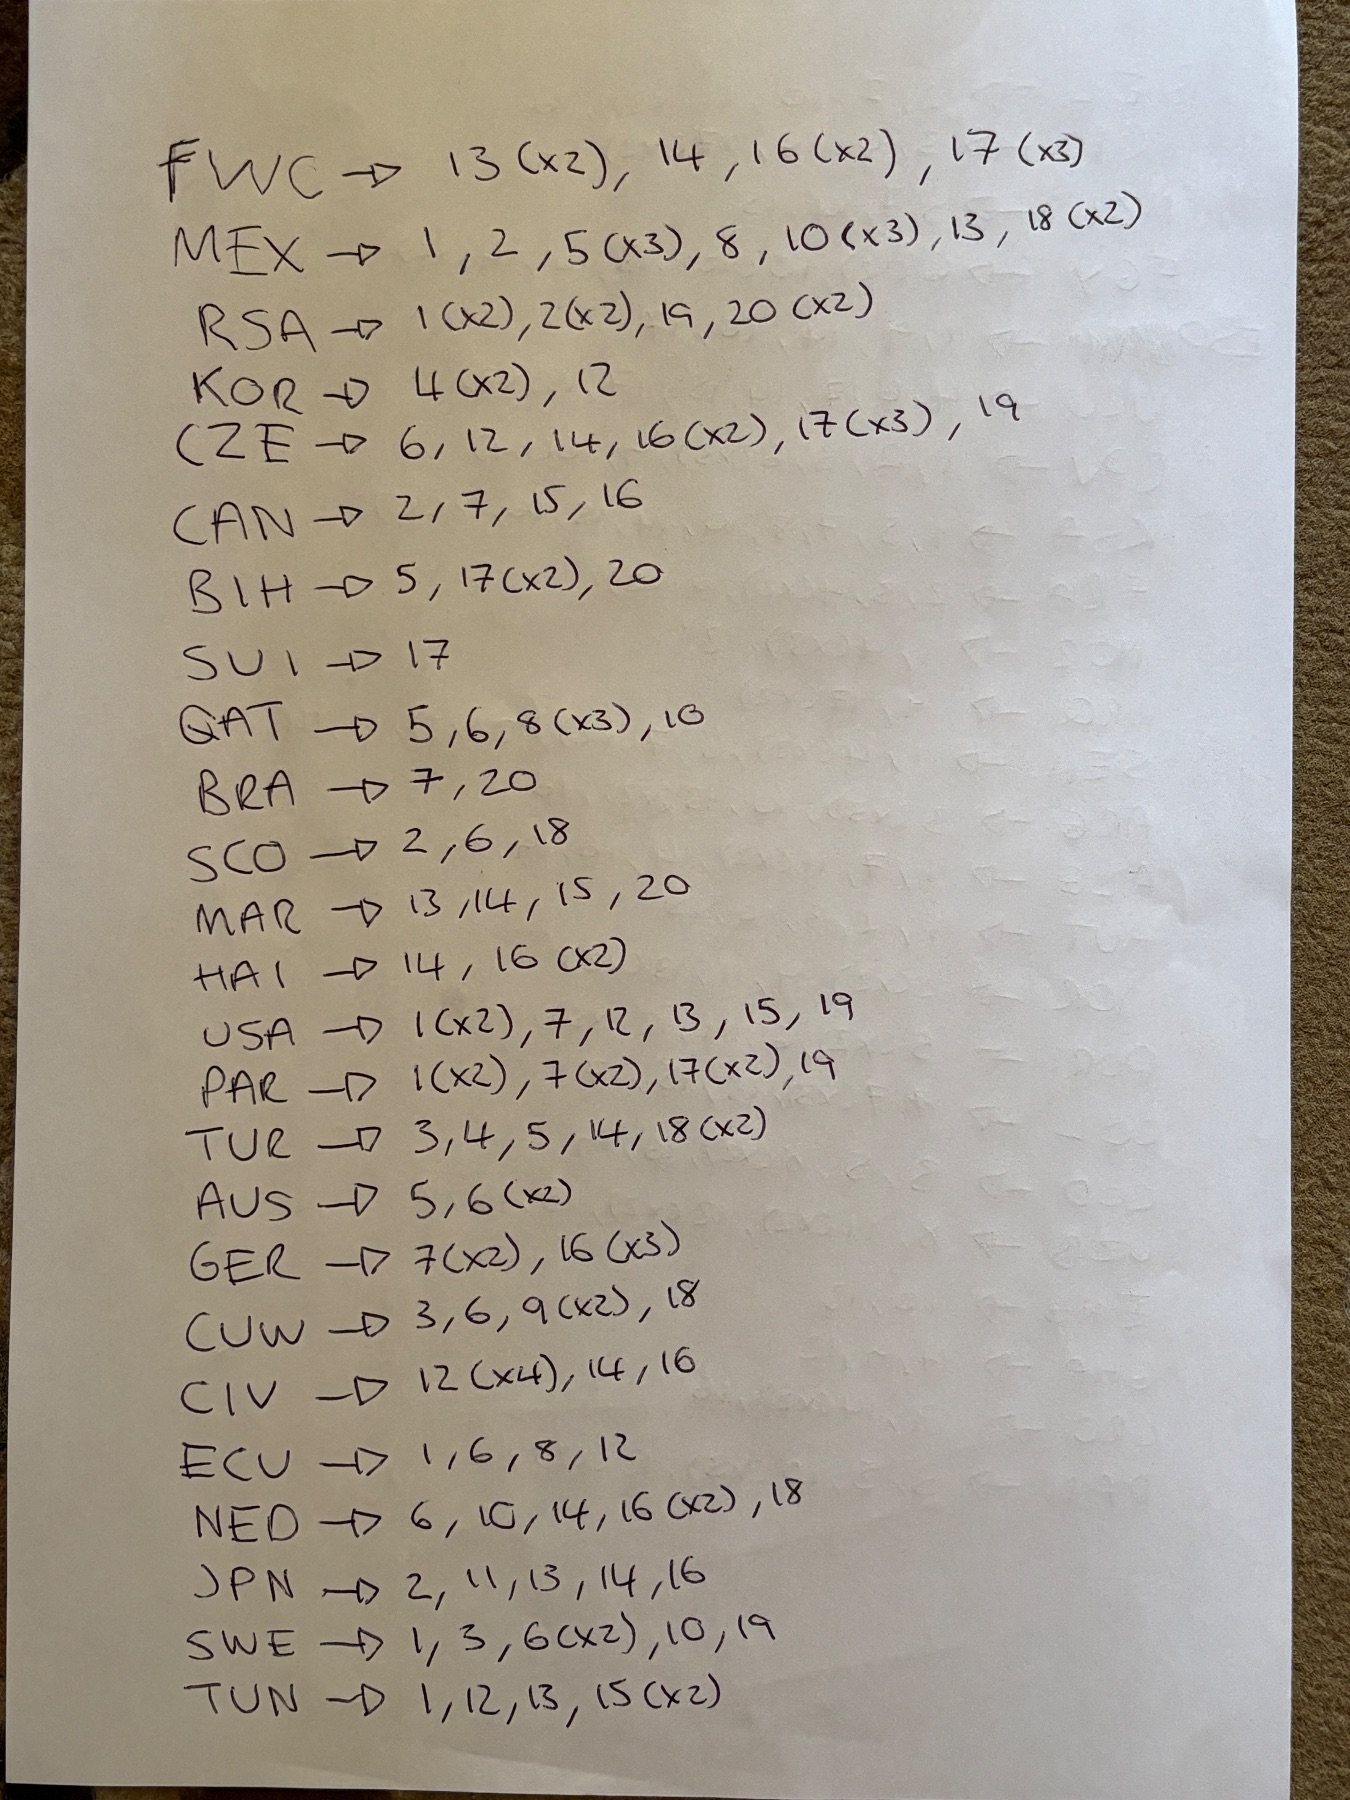 FWC → 13 (x2), 14, 16 (x2), 17 (x3)
MEX → 1, 2, 5 (x3), 8, 10 (x3), 13, 18 (x2)
RSA → 1 (x2), 2 (x2), 19, 20 (x2)
KOR → 4 (x2), 12
CZE → 6, 12, 14, 16 (x2), 17 (x3), 19
CAN → 2, 7, 15, 16
BIH → 5, 17 (x2), 20
SUI → 17
QAT → 5, 6, 8 (x3), 10
BRA → 7, 20
SCO → 2, 6, 18
MAR → 13, 14, 15, 20
HAI → 14, 16 (x2)
USA → 1 (x2), 7, 12, 13, 15, 19
PAR → 1 (x2), 7 (x2), 17 (x2), 19
TUR → 3, 4, 5, 14, 18 (x2)
AUS → 5, 6 (x2)
GER → 7 (x2), 16 (x3)
CUW → 3, 6, 9 (x2), 18
CIV → 12 (x4), 14, 16
ECU → 1, 6, 8, 12
NED → 6, 10, 14, 16 (x2), 18
JPN → 2, 11, 13, 14, 16
SWE → 1, 3, 6 (x2), 10, 19
TUN → 1, 12, 13, 15 (x2)